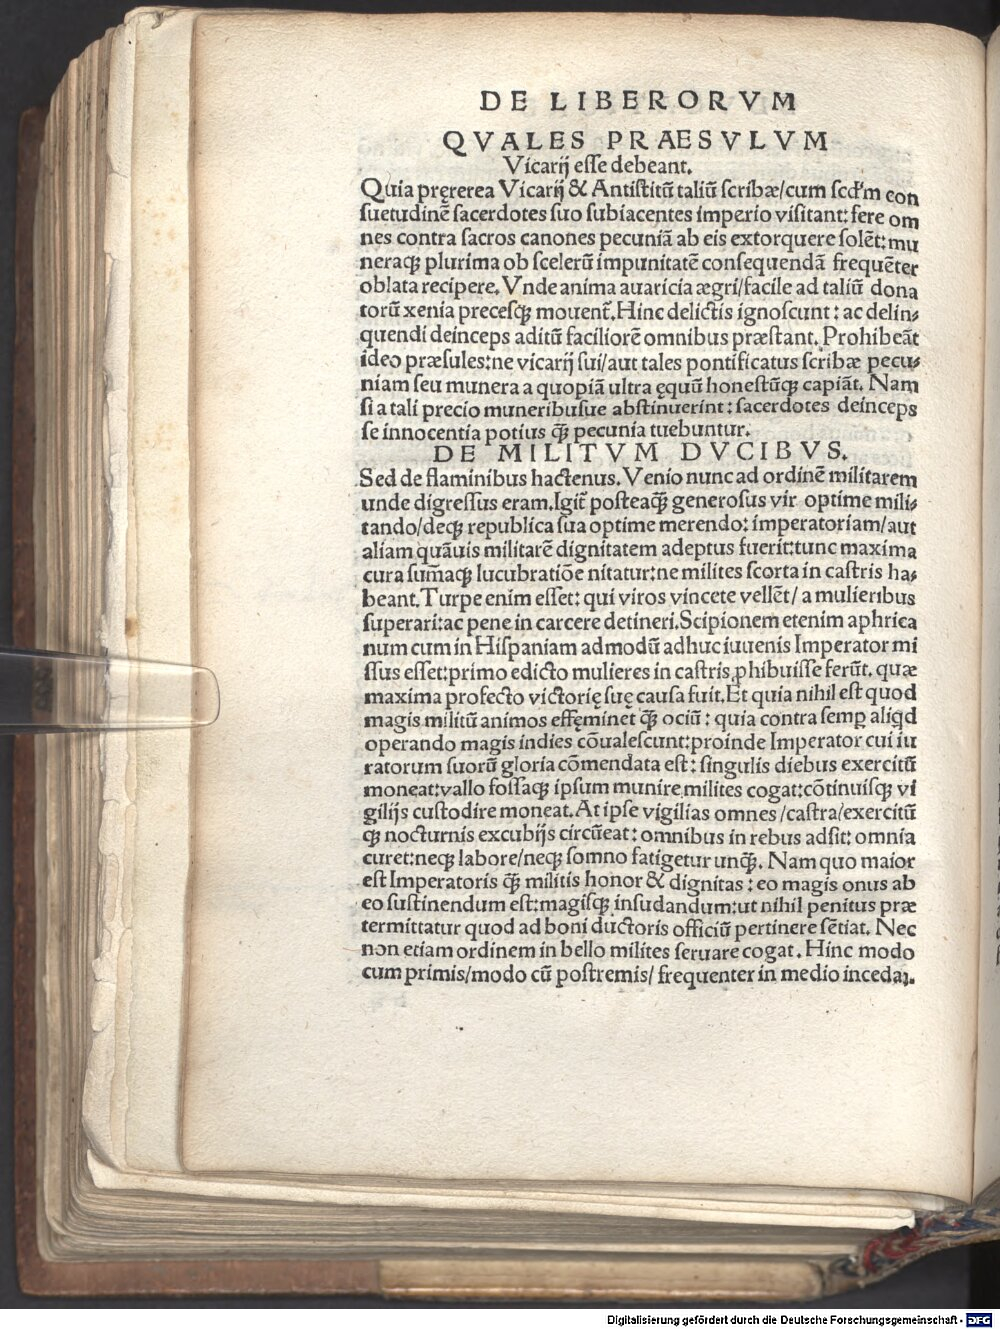 DE LIBERORVM
QVALES PRAESVLVM
Vicarij eſſe debeant.
Quia pręrerea Vicarij & Antiſtitū taliū ſcribæ/cum ſcd'm con
ſuetudinē ſacerdotes ſuo ſubiacentes imperio viſitant: fere om
nes contra ſacros canones pecuniā ab eis extorquere ſolēt: mu
neraqꝫ plurima ob ſcelerū impunitatē conſequendā frequēter
oblata recipere. Vnde anima auaricia ægri/facile ad taliū dona
torū xenia preceſqꝫ mouent̃. Hinc delictis ignoſcunt: ac delin⸗
quendi deinceps aditū faciliorē omnibus præſtant. Prohibeāt
ideo præſules: ne vicarij ſui/aut tales pontificatus ſcribæ pecu⸗
niam ſeu munera a quopiā ultra ęquū honeſtūqꝫ capiāt. Nam
ſi a tali precio muneribuſue abſtinuerint: ſacerdotes deinceps
ſe innocentia potius q̃ꝫ pecunia tuebuntur.
DE MILITVM DVCIBVS.
Sed de flaminibus hactenus. Venio nunc ad ordinē militarem
unde digreſſus eram. Igit̃ poſteaq̃ꝫ generoſus vir optime mili⸗
tando/deqꝫ republica ſua optime merendo: imperatoriam/aut
aliam quāuis militarē dignitatem adeptus fuerit: tunc maxima
cura ſum̄aqꝫ lucubratiōe nitatur: ne milites ſcorta in caſtris ha⸗
beant. Turpe enim eſſet: qui viros vincere vellēt/ a mulieribus
ſuperari: ac pene in carcere detineri. Scipionem etenim aphrica
num cum in Hiſpaniam admodū adhuc iuuenis Imperator mi
ſſus eſſet: primo edicto mulieres in caſtris ꝓhibuiſſe ferūt. quæ
maxima profecto victorię ſuę cauſa fuit. Et quia nihil eſt quod
magis militū animos effęminet q̃ꝫ ociū: quia contra ſemꝑ aliqd
operando magis indies cōualeſcunt: proinde Imperator cui iu
ratorum ſuorū gloria cōmendata eſt: ſingulis diebus exercitū
moneat: vallo foſſaqꝫ ipſum munire milites cogat: cōtinuiſqꝫ vi
gilijs cuſtodire moneat. At ipſe vigilias omnes/caſtra/exercitū
qꝫ nocturnis excubijs circūeat: omnibus in rebus adſit: omnia
curet: neqꝫ labore/neqꝫ ſomno fatigetur unq̃ꝫ. Nam quo maior
eſt Imperatoris q̃ꝫ militis honor & dignitas: eo magis onus ab
eo ſuſtinendum eſt: magiſqꝫ inſudandum: ut nihil penitus præ
termittatur quod ad boni ductoris officiū pertinere ſētiat. Nec
non etiam ordinem in bello milites ſeruare cogat. Hinc modo
cum primis/modo cū poſtremis/ frequenter in medio incedaꝫ.
Digitalisierung gefördert durch die Deutsche Forschungsgemeinschaft - DFG